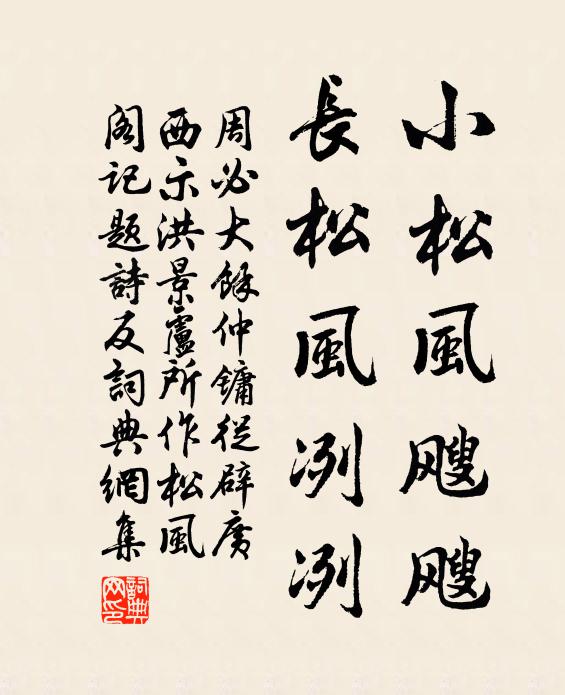 小松風颼颼
長松風冽冽
周必大餘仲鏞從辟廣
西示洪景盧所作松風
閣記題詩反詞典網集
詞典
网印